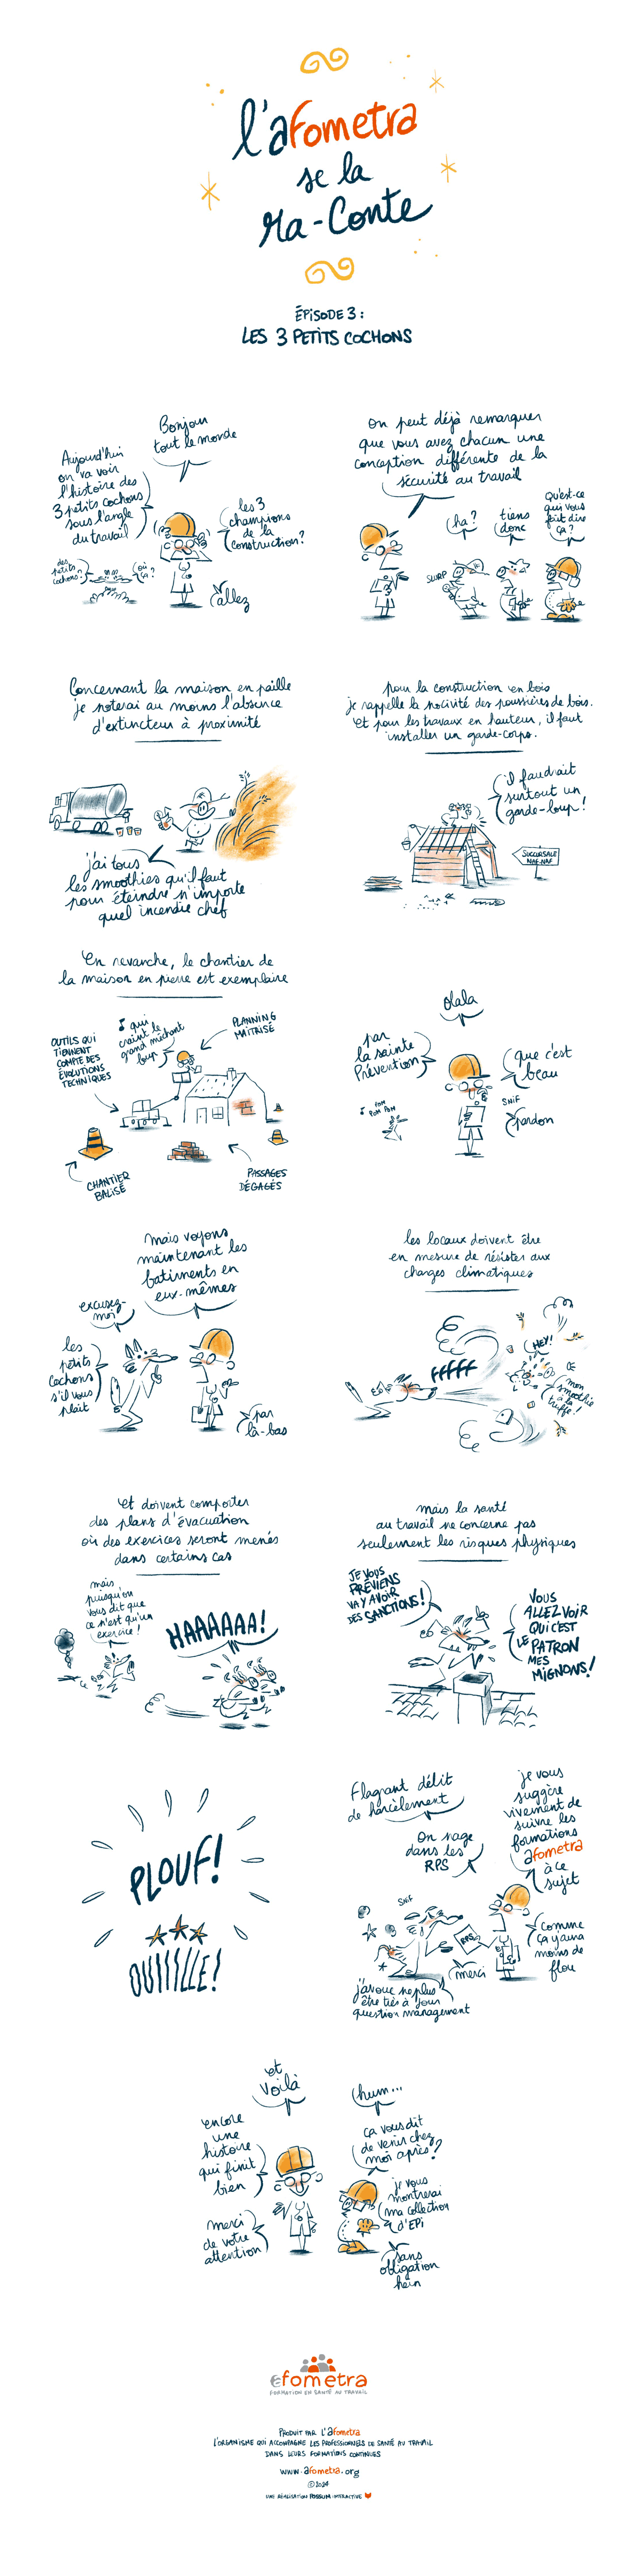 l'afometra
se la
ra-conte
ÉPISODE 3 :
LES 3 PETITS COCHONS
Bonjour
tout le monde
Aujourd'hui
on va voir
l'histoire des
3 petits cochons
sous l'angle
du travail
les 3
champions
de la
construction?
des
petits
cochons?
où
ça?
allez
On peut déjà remarquer
que vous avez chacun une
conception différente de la
sécurité au travail
SLURP
ha?
tiens
donc
Qu'est-ce
qui vous
fait dire
ça?
Concernant la maison en paille
je noterai au moins l'absence
d'extincteur à proximité
j'ai tous
les smoothies qu'il faut
pour éteindre n'importe
quel incendie chef
pour la construction en bois
je rappelle la nocivité des poussières de bois.
Et pour les travaux en hauteur, il faut
installer un garde-corps.
il faudrait
surtout un
garde-loup!
SUCCURSALE
NAF-NAF
En revanche, le chantier de
la maison en pierre est exemplaire
OUTILS QUI
TIENNENT
COMPTE DES
ÉVOLUTIONS
TECHNIQUES
♪ qui
craint le
grand méchant
loup
PLANNING
MAITRISÉ
CHANTIER
BALISÉ
PASSAGES
DÉGAGÉS
olala
par
la sainte
Prévention
que c'est
beau
SNIF
pardon
♪ POM
POM POM
mais voyons
maintenant les
batiments en
eux-mêmes
excusez-
moi
les
petits
cochons
s'il vous
plait
par
là-bas
les locaux doivent être
en mesure de résister aux
charges climatiques
fffff
HEY!
mon
smoothie
à la
truffe!
et doivent comporter
des plans d'évacuation
où des exercices seront menés
dans certains cas
mais
puisqu'on
vous dit que
ce n'est qu'un
exercice!
HAAAAAA!
mais la santé
au travail ne concerne pas
seulement les risques physiques
JE VOUS
PRÉVIENS
VA Y AVOIR
DES SANCTIONS!
VOUS
ALLEZ VOIR
QUI C'EST
LE PATRON
MES
MIGNONS!
PLOUF!
OUIIILLE!
Flagrant délit
de harcèlement
On nage
dans les
RPS
je vous
suggère
vivement de
suivre les
formations
afometra
à ce
sujet
SNIF
RPS
merci
comme
ça y'aura
moins de
flou
j'avoue ne plus
être très à jour
question management
et
voilà
encore
une
histoire
qui finit
bien
merci
de votre
attention
hum...
ça vous dit
de venir chez
moi après?
je vous
montrerai
ma collection
d'EPi
sans
obligation
hein
afometra
FORMATION EN SANTÉ AU TRAVAIL
PRODUIT PAR L'afometra
L'ORGANISME QUI ACCOMPAGNE LES PROFESSIONNELS DE SANTÉ AU TRAVAIL
DANS LEURS FORMATIONS CONTINUES
www.afometra.org
UNE RÉALISATION POSSUM INTERACTIVE